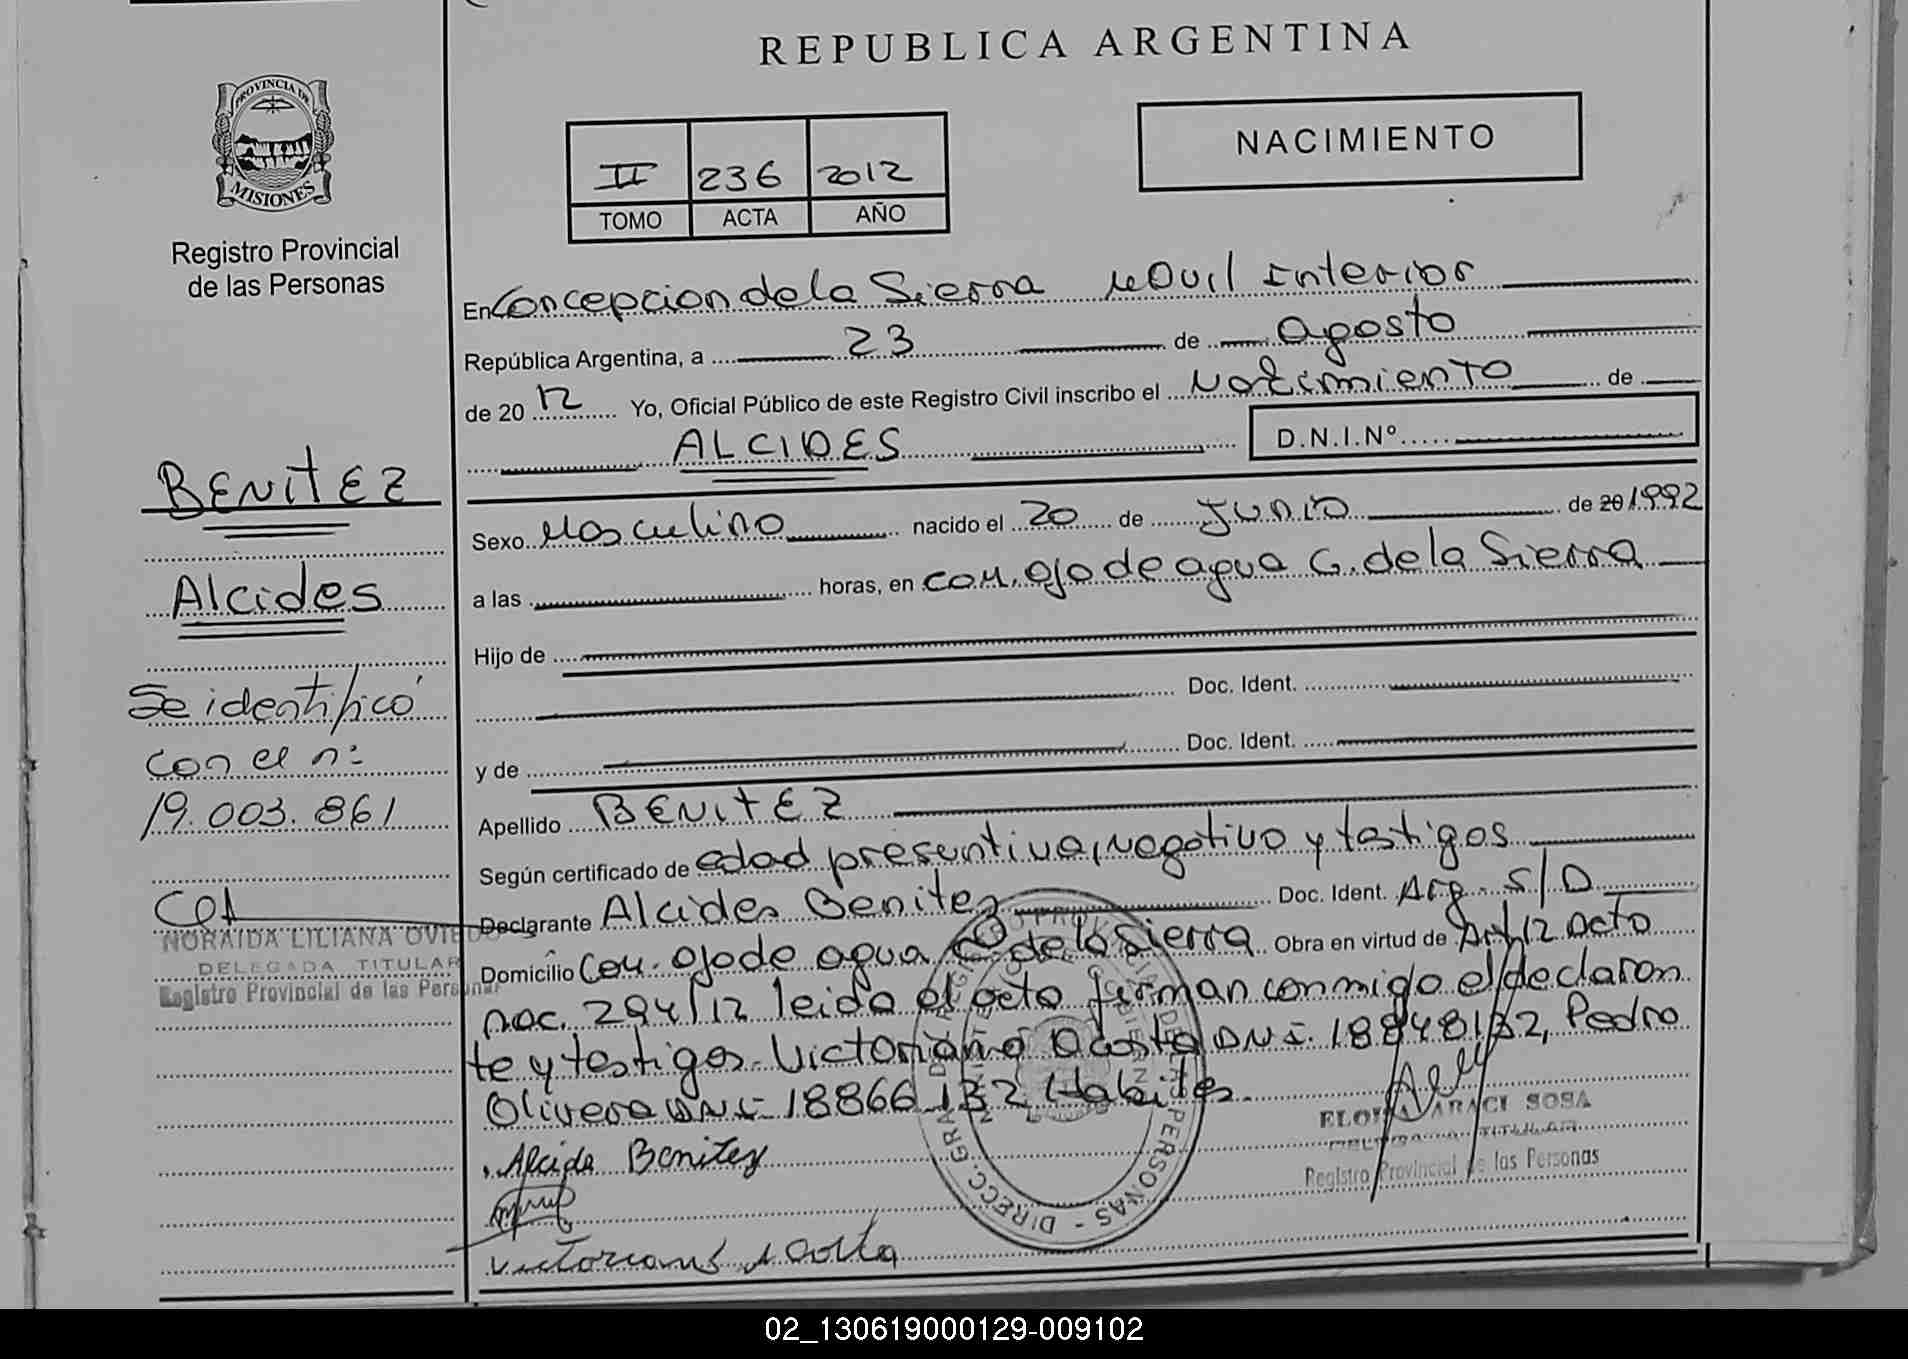 REPUBLICA ARGENTINA
PROVINCIA DE
MISIONES
Registro Provincial
de las Personas
II 236 2012
TOMO ACTA AÑO
NACIMIENTO
En Concepcion de la Sierra Movil Interior
República Argentina, a 23 de agosto
de 20 12 Yo, Oficial Público de este Registro Civil inscribo el Nacimiento de
ALCIDES D.N.I.Nº
Sexo Masculino nacido el 20 de Junio de 20 1992
a las horas, en Com. ojo de agua C. de la Sierra
Hijo de
Doc. Ident.
y de Doc. Ident.
Apellido BENITEZ
Según certificado de edad presuntiva, negativo y testigos
Declarante Alcides Benitez Doc. Ident. Arg. S/D
Domicilio Com. ojo de agua C. de la Sierra Obra en virtud de Art 12 acto
nac. 294/12 leida el acta firman conmigo el declaran
te y testigos. Victoriano Acosta DNI. 18848132, Pedro
Olivera DNI- 18866132 Habiles.
Alcide Benitez
Victoriano Acosta
BENITEZ
Alcides
Se identificó
con el nº
19.003.861
NORAIDA LILIANA OVIEDO
DELEGADA TITULAR
Registro Provincial de las Personas
ARACI SOSA
TITULAR
Registro Provincial de las Personas
02_130619000129-009102